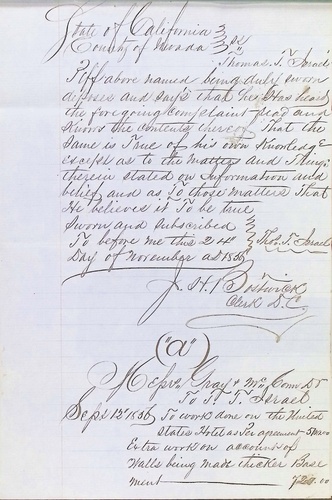 State of California }
County of Nevada } ss
Thomas T. Israel
Plff above named being duly sworn
deposes and says that he has heard
the foregoing complaint read and
Knows the contents thereof That the
same is True of his own Knowledge
except as to the matters and Things
therein stated on Information and
belief and as To those matters That
He believes it To be true
Sworn and subscribed
To before me this 24th } Tho. T. Israel
Day of November AD 1856
J. H. Bostwick
Clerk D. C.
("a")
Messrs Gray & McComb Dr
To T. T. Israel
Sept 12th 1856 To work done on the United
States Hotel as Per agreement
Extra work on account of
Walls being made thicker Base
ment 720.00